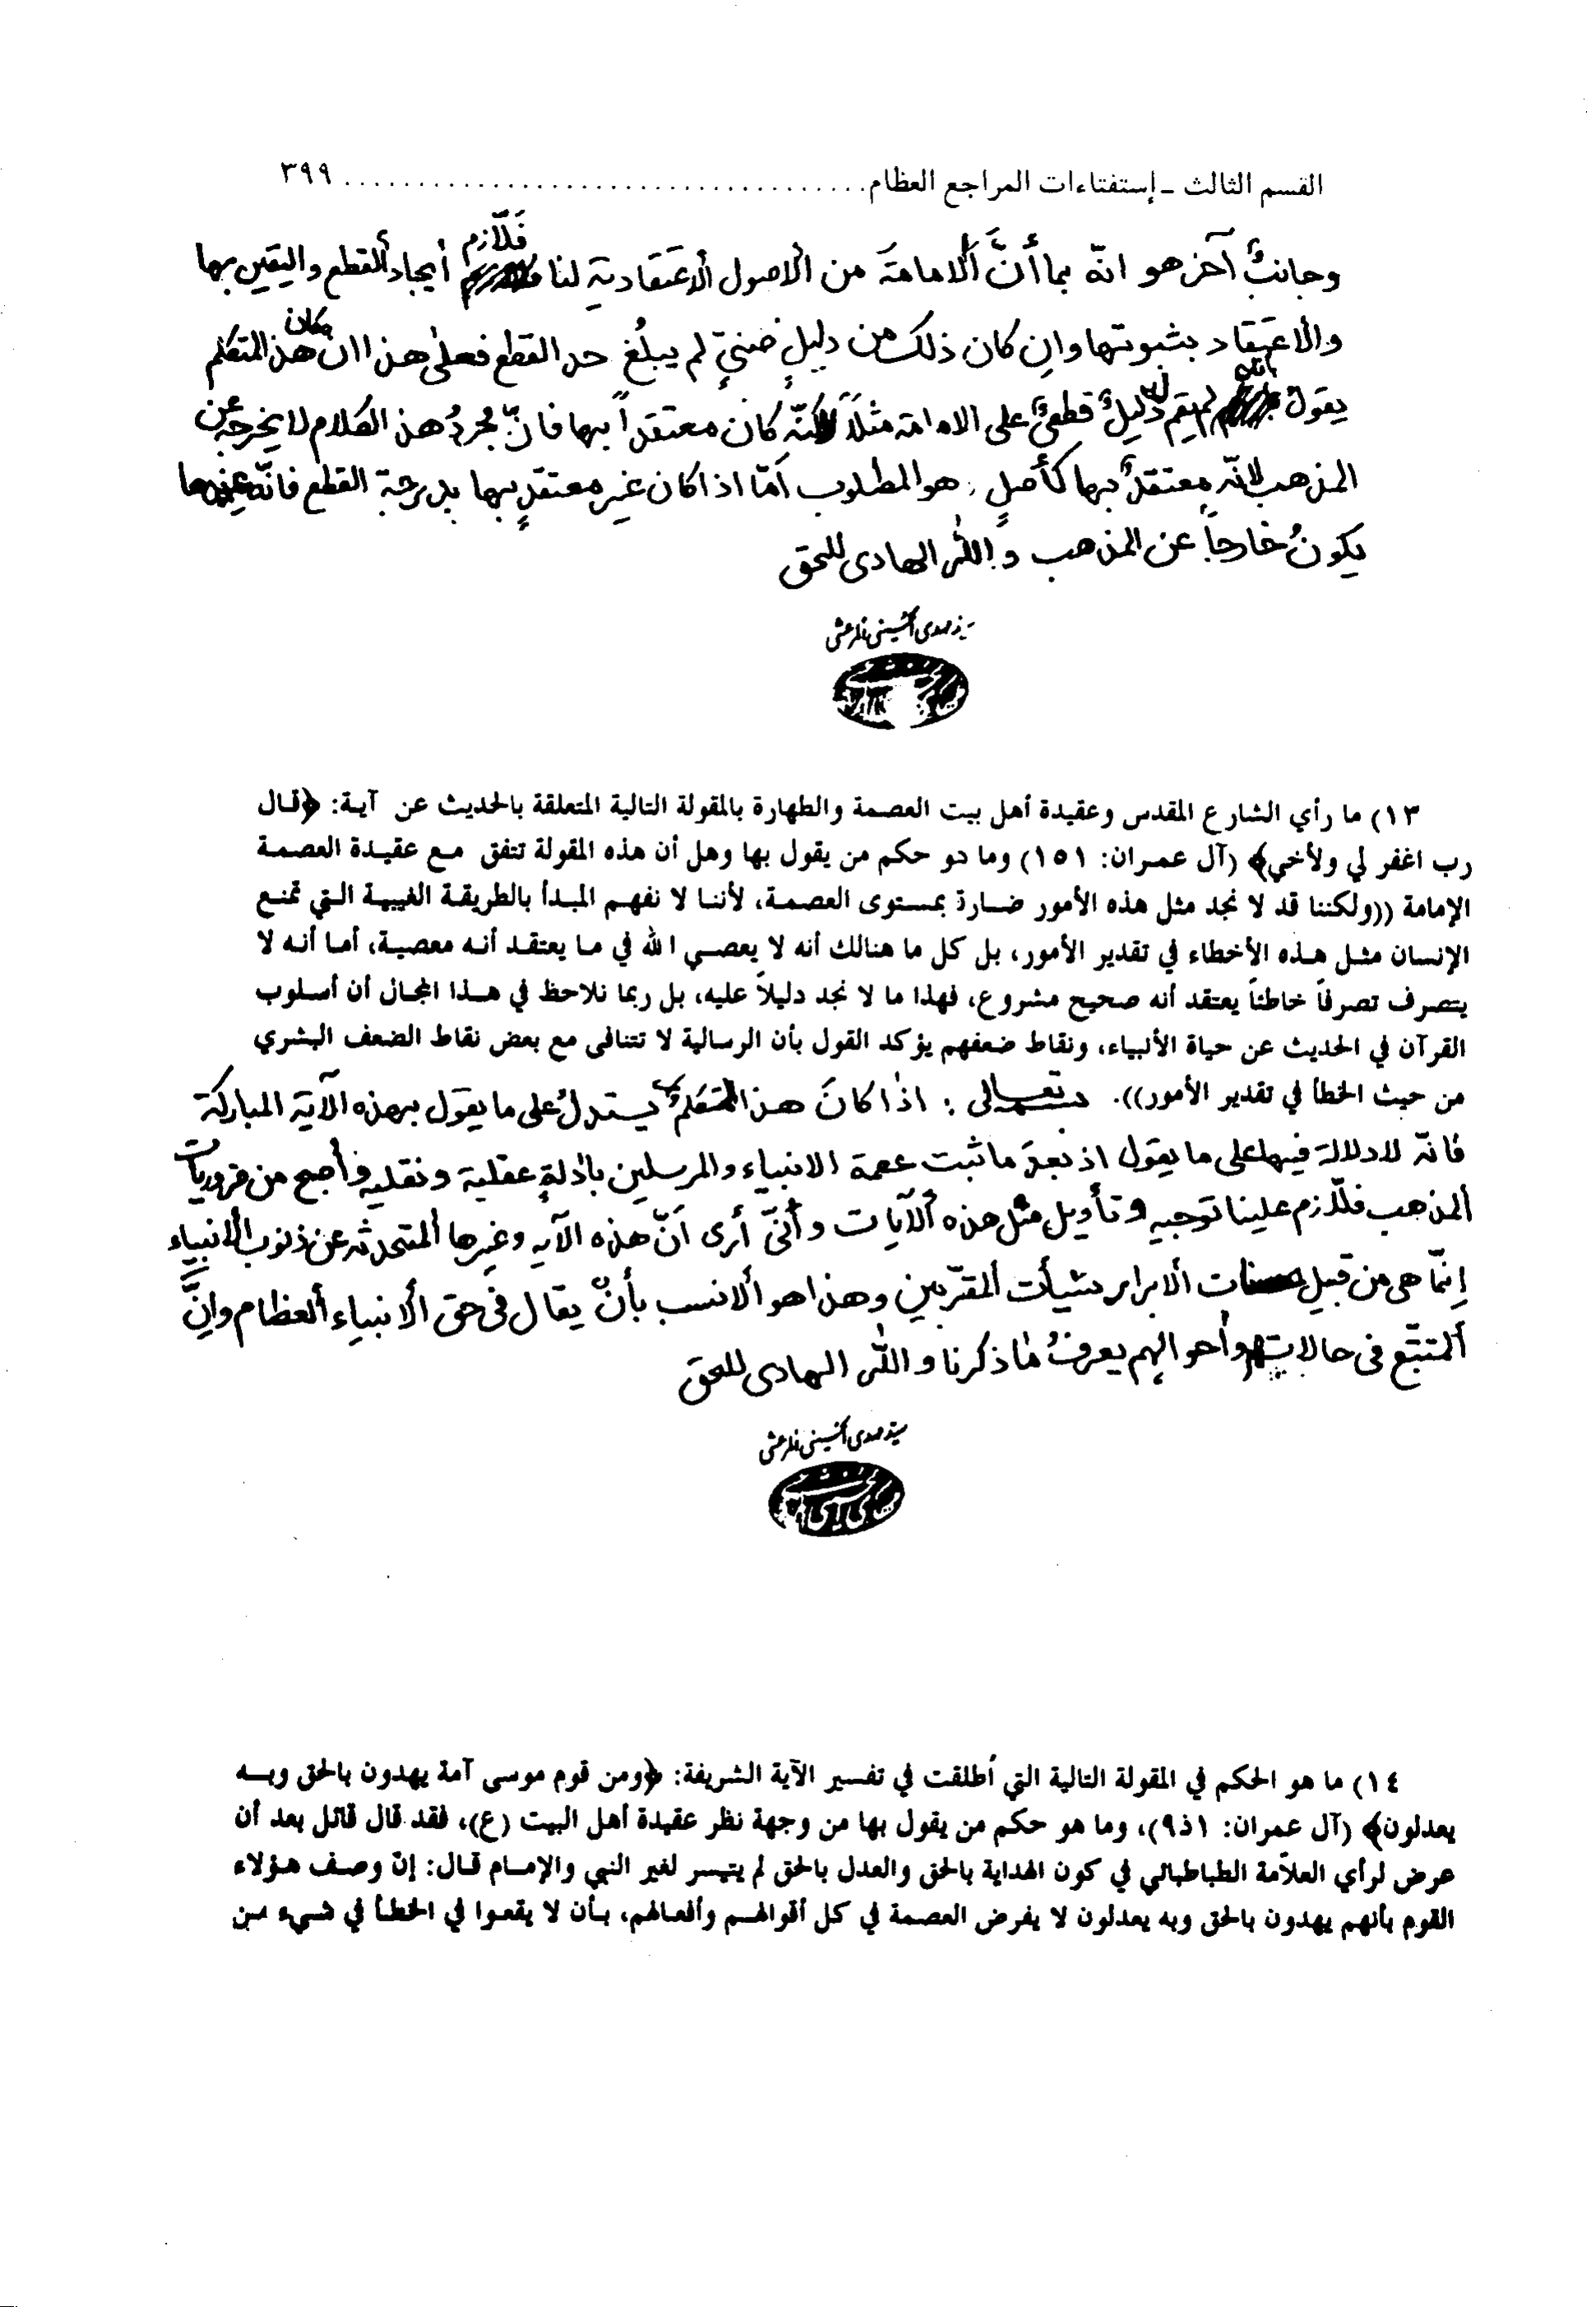 القسم الثالث ـ إستفتاءات المراجع العظام ................................... ٣٩٩
وجانبٌ آخر هو انّه بما أنَّ ألامامةَ من ألاصول ألاعتقادية لنا فلّازم أيجاد ألقطع واليقين بها
والاعتقاد بثبوتها وإن كان ذلك من دليلٍ ضنيٍّ لم يبلُغ حد القطع فعلىٰ هذا ان كان هذ المتكلم
يقولُ لم يقم دليلٌ قطعيٌ على الامامة مثلاً لكنّه كان معتقداً بها فانّ مجردُ هذ الكلام لا يخرجه عن
المذهب لانّه معتقدٌ بها كأصلٍ هو المطلوب أمّا اذا كان غير معتقدٍ بها بدرجة القطع فانّه عندها
يكونُ خارجاً عن المذهب والله الهادى للحق
سيد مهدى الحسينى المرعشى
١٣) ما رأي الشارع المقدس وعقيدة أهل بيت العصمة والطهارة بالمقولة التالية المتعلقة بالحديث عن آية: ﴿قال
رب اغفر لي ولأخي﴾ (آل عمران: ١٥١) وما دو حكم من يقول بها وهل أن هذه المقولة تتفق مع عقيدة العصمة
الإمامة ((ولكننا قد لا نجد مثل هذه الأمور ضارة بمستوى العصمة، لأننا لا نفهم المبدأ بالطريقة الغيبية التي تمنع
الإنسان مثل هذه الأخطاء في تقدير الأمور، بل كل ما هنالك أنه لا يعصي الله في ما يعتقد أنه معصية، أما أنه لا
يتصرف تصرفاً خاطئاً يعتقد أنه صحيح مشروع، فهذا ما لا نجد دليلاً عليه، بل ربما نلاحظ في هذا المجال أن أسلوب
القرآن في الحديث عن حياة الأنبياء، ونقاط ضعفهم يؤكد القول بأن الرسالية لا تتنافى مع بعض نقاط الضعف البشري
من حيث الخطأ في تقدير الأمور)). تعالى : اذا كانَ هذ المتكلم يستدلُ على ما يقول بهذه الآية المباركة
فانّه لا دلالة فيها على ما يقول اذ بعدَ ما ثبت عصمة الانبياء والمرسلين بادلةٍ عقلية ونقليه وأصبح من ضروريات
ألمذهب فلّازم علينا توجيه و تأويل مثل هذه ألآيات وأنّي أرى أنّ هذه الآيه وغيرها ألمتحدثه عن ذنوب ألانبياء
إنمّا هى من قبيل حسنات ألابرار سيّأت ألمقرّبين وهذا هو ألانسب بأنّ يقال فى حق ألانبياء ألعظام وإنَّ
ألمتتبّع فى حالاتهم وأحوالهم يعرفُ ما ذكرنا والله الهادى للحق
سيد مهدى الحسينى المرعشى
١٤) ما هو الحكم في المقولة التالية التي أطلقت في تفسير الآية الشريفة: ﴿ومن قوم موسى آمة يهدون بالحق وبه
يعدلون﴾ (آل عمران: ١ذ٩)، وما هو حكم من يقول بها من وجهة نظر عقيدة أهل البيت (ع)، فقد قال قائل بعد أن
عرض لرأي العلاّمة الطباطبائي في كون الهداية بالحق والعدل بالحق لم يتيسر لغير النبي والإمام قال: إنّ وصف هؤلاء
القوم بأنهم يهدون بالحق وبه يعدلون لا يفرض العصمة في كل أقوالهم وأفعالهم، بأن لا يقعوا في الخطأ في شيء من